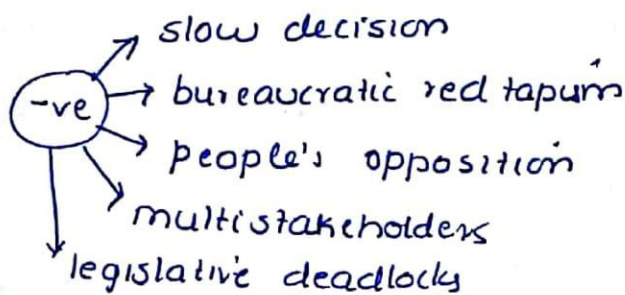 slow decision
-ve
bureaucratic red tapism
people's opposition
multistakeholders
legislative deadlocks